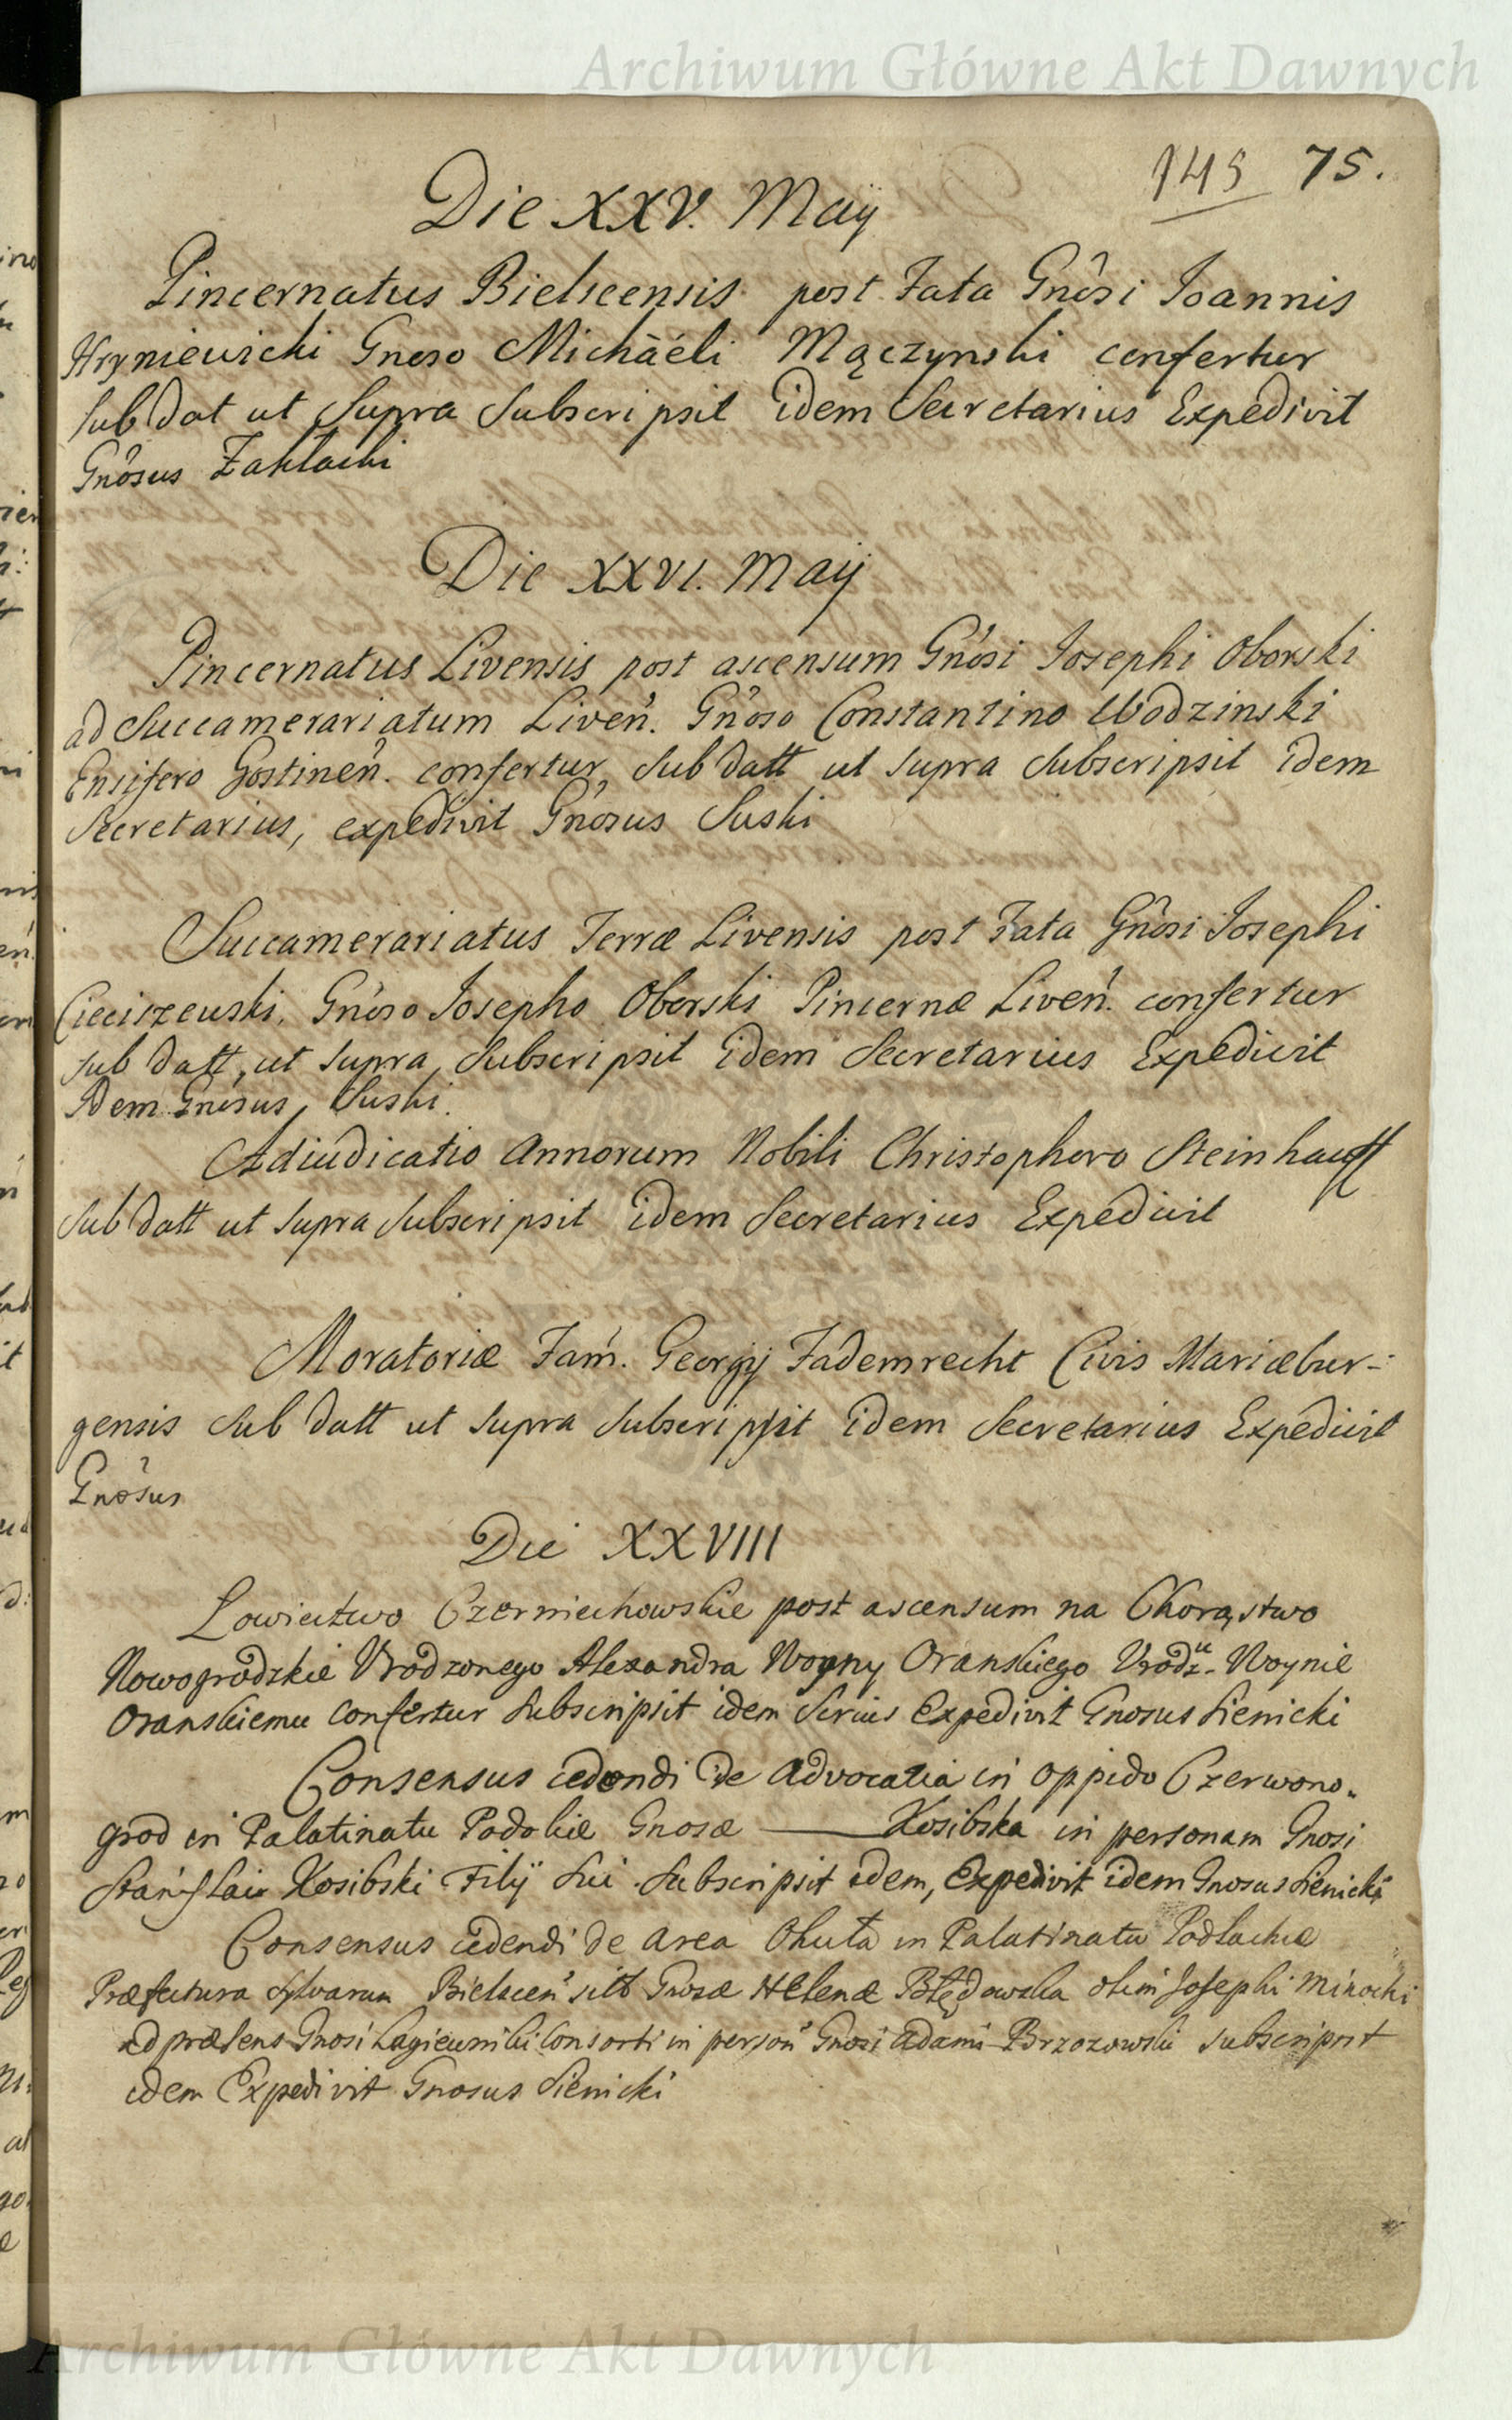 Archiwum Główne Akt Dawnych
145 75.
Die XXV. Maij
Pincernatus Bielscensis post Fata Gnôsi Ioannis
Hryniewicki Gnoso Michaéli Mączynski confertur
sub dat ut Supra Subscripsit idem Secretarius Expedivit
Gnôsus Zakłacki
Die XXVI. Maij
Pincernatus Livensis post ascensum Gnôsi Iosephi Oborski
ad Succamerariatum Liveń. Gnôso Constantino Wodzinski
Ensifero Gostineń. confertur, Sub datt ut supra Subscripsit idem
Secretarius, expedivit Gnosus Suski
Succamerariatus Terræ Livensis post Fata Gnôsi Iosephi
Cieciszewski. Gnôso Iosepho Oborski Pincernæ Liveń. confertur
sub datt, ut supra, Subscripsit idem Secretarius Expedivit
Idem Gnosus, Suski.
Adiudicatio Annorum Nobili Christophoro Steinhauff
Sub datt ut supra Subscripsit idem Secretarius Expedivit
Moratoriæ Fam. Georgij Fademrecht Civis Mariæbur-:
gensis Sub datt ut supra Subscripsit idem Secretarius Expedivit
Gnôsus
Die XXVIII
Łowiectwo Czerniechowskie post ascensum na Chorąstwo
Nowogrodzkie Vrodzonego Alexandra Woyny Oranskiego Vrodz.u Woynie
Oranskiemu confertur Subscripsit idem Serius Expedivit Gnosus Sienicki
Consensus cedendi de Advocatia in oppido Czerwono.
grod in Palatinatu Podoliæ Gnosæ —— Kosibska in personam Gnosi
Stanislai Kosibski Filij Sui Subscripsit idem, Expedivit idem Gnosus Sienicki
Consensus cedendi de area Okuta in Palatinatu Podlachiæ
Præfectura Sylvarum Bielsceń sitt Gnosæ Helenæ Błędowska olim Josephi Minocki
ad præsens Gnosi Łagiewnicki Consorti in persoń Gnosi Adami Brzozowski Subscripsit
idem Expedivit Gnosus Sienicki
Archiwum Główne Akt Dawnych